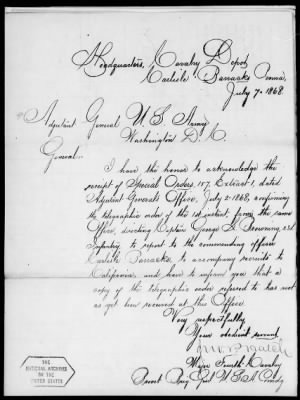 Headquarters, Cavalry Depot,
Carlisle Barracks Penna,
July 7. 1868.
Adjutant General U S Army
Washington D. C.
General:
I have the honor to acknowledge the
receipt of Special Orders, 157, Extract 1, dated
Adjutant General's Office, July 2. 1868, confirming
the telegraphic order of the 1st instant from the same
Office, directing Captain George
Infantry, to report to the commanding officer
Carlisle Barracks, to accompany recruits to
California, and have to inform you that a
copy of the telegraphic order refered to has not
as yet been received at this Office.
Very respectfully
Your obedient servant
Hatch
Major Fourth Cavalry
Brevet Brig Genl U. S. A Comdg
THE
NATIONAL ARCHIVES
OF THE
UNITED STATES